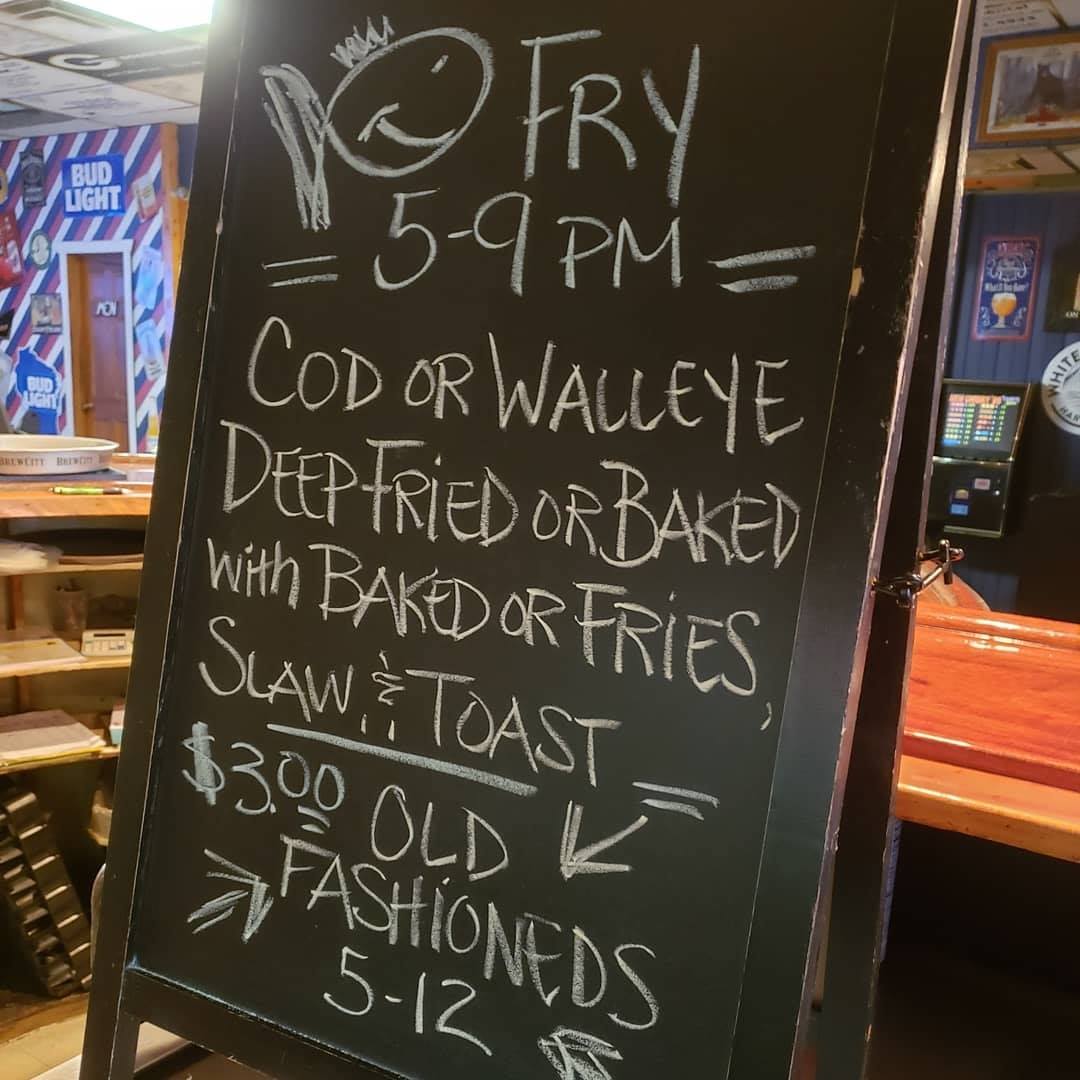 FRY
5-9 PM
COD OR WALLEYE
DEEP FRiED OR BAKED
with BAKED OR FRiES,
SLAW & TOAST
$3.00 OLD
FASHiONEDS
5-12
BUD
LIGHT
BUD
LIGHT
MEN
BREWCITY BREWCITY
WHITE